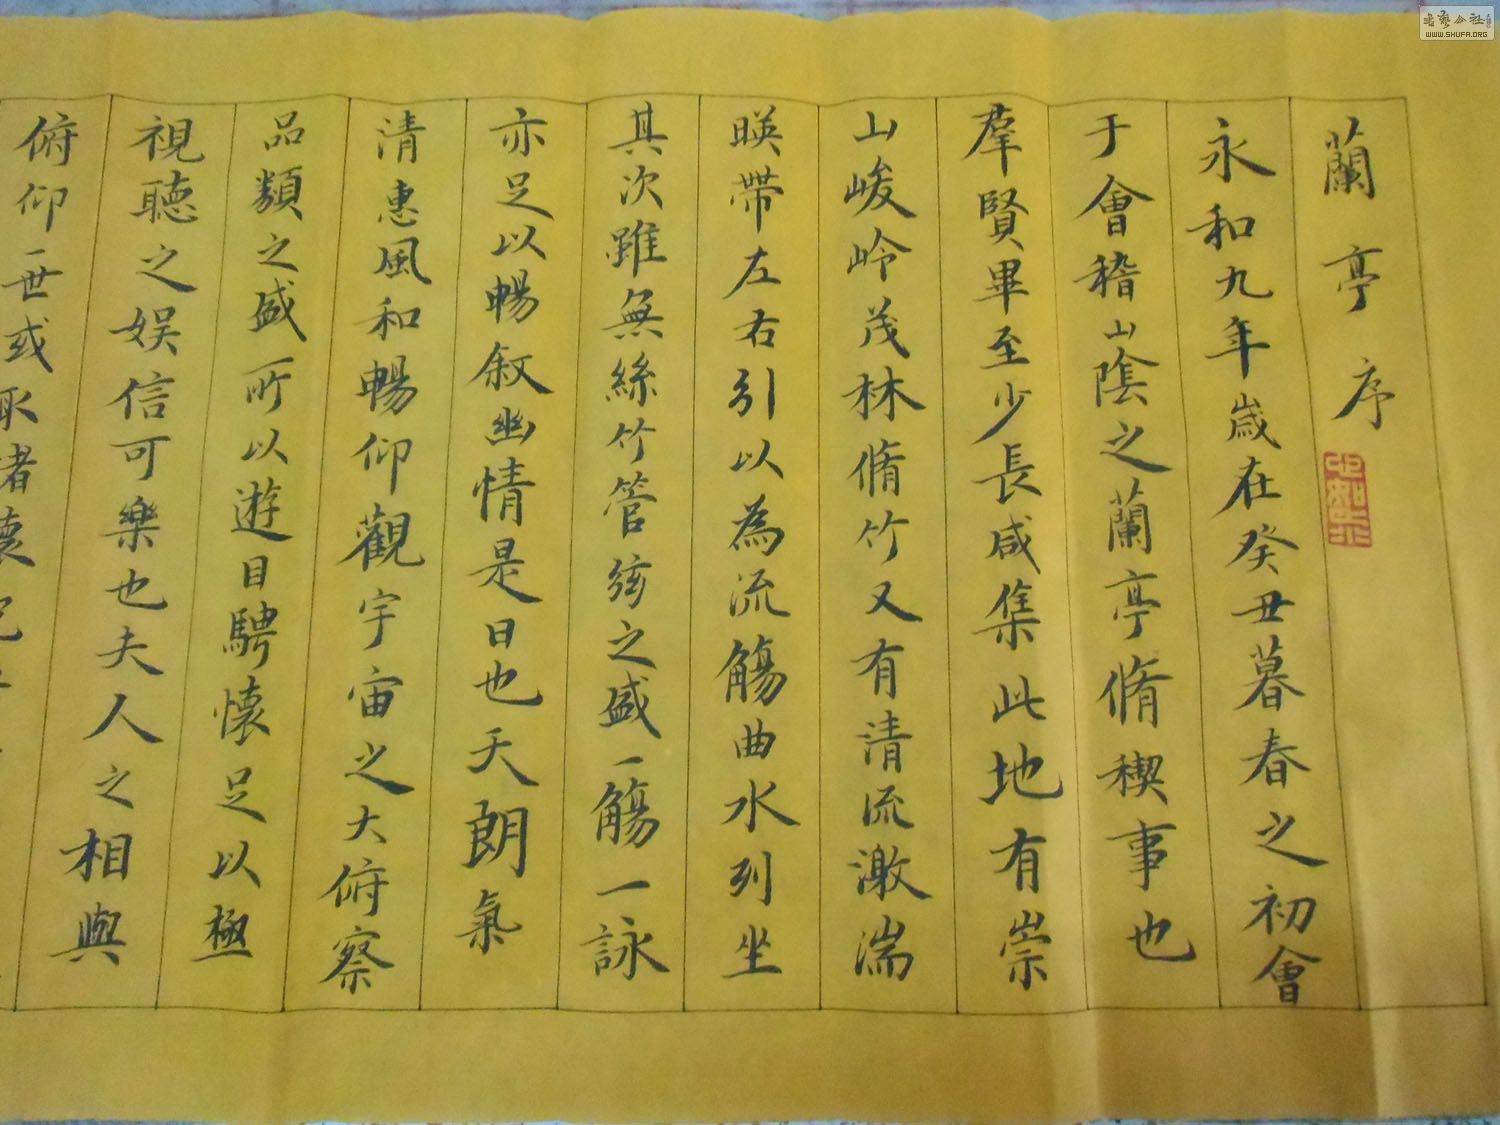 蘭亭序
永和九年歲在癸丑暮春之初會
于會稽山陰之蘭亭脩稧事也
羣賢畢至少長咸集此地有崇
山峻岭茂林脩竹又有清流激湍
暎帶左右引以為流觴曲水列坐
其次雖無絲竹管弦之盛一觴一詠
亦足以暢敘幽情是日也天朗氣
清惠風和暢仰觀宇宙之大俯察
品類之盛所以遊目騁懷足以極
視聽之娛信可樂也夫人之相與
俯仰一世或取諸懷
書藝公社
WWW.SHUFA.ORG